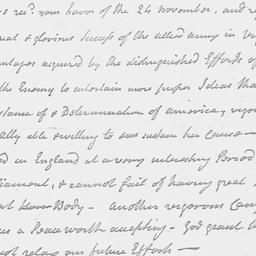 rec'd your favor of the 24 November, and
great & glorious Success of the allied army in
acquired by the distinguished Efforts of
the Enemy to entertain more proper Ideas tha
& Determination of america, vigor
ally able & willing to sustain her Cause
in England at a very interesting Period
& cannot fail of having great
Body - Another vigorous Cam
us a Peace worth accepting - God grant
not relax our future Efforts -